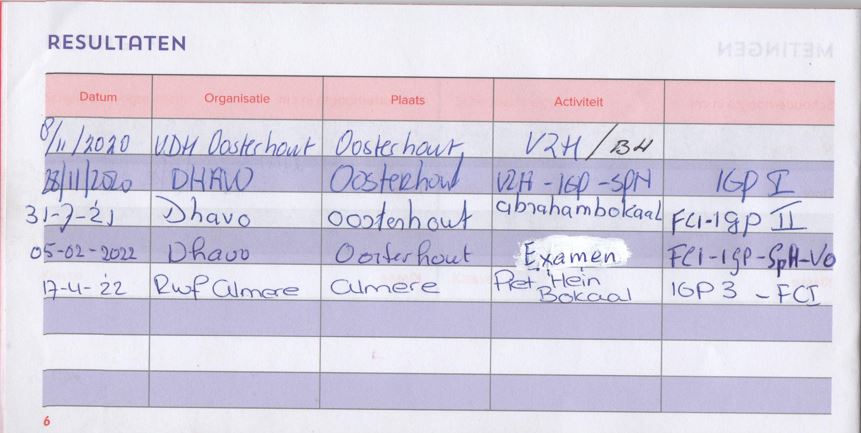 RESULTATEN
METINGEN
Datum Organisatie Plaats Activiteit
8/11/2020 VDH Oosterhout Oosterhout V2H / BH
28/11/2020 DHAVO Oosterhout V2H - IGP - SPH IGP I
31-7-21 Dhavo oosterhout abrahambokaal FCI-IGP II
05-02-2022 Dhavo Oosterhout Examen FCI-IGP-SpH-VO
17-4-22 Rwf Almere Almere Piet Hein
Bokaal IGP 3 - FCI
6